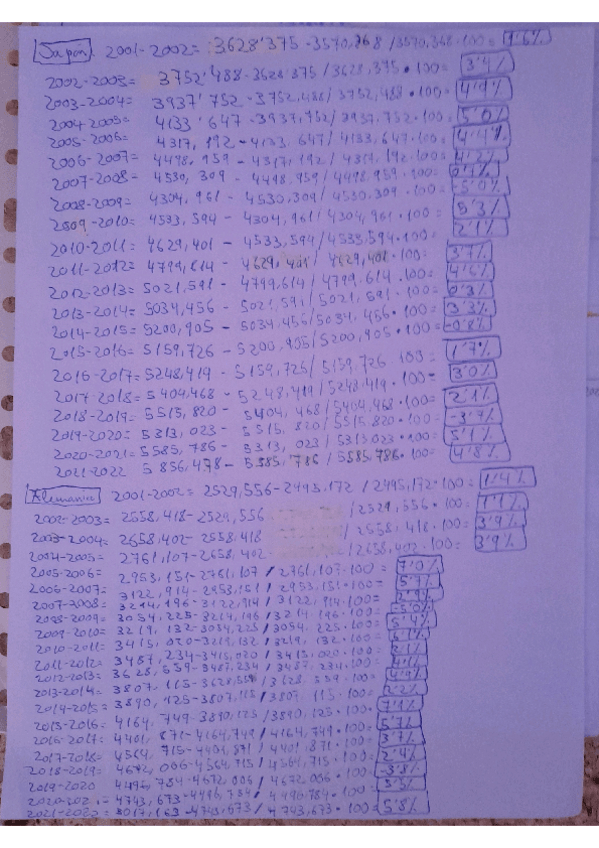 Japón 2001-2002= 3628'375 -3570,368 /3570,368.100= 1'6%
2002-2003= 3752'488-3628'375/3628,375•100= 3'4%
2003-2004= 3937'752-3752,488/3752,488•100= 4'9%
2004-2005= 4133'647-3937,752/3937,752•100= 5'0%
2005-2006= 4317,192-4133,647/4133,647•100= 4'4%
2006-2007= 4498,959-4317,192/4317,192•100= 4'2%
2007-2008= 4530,309 - 4498,959/4498,959•100=
2008-2009= 4304,961-4530,309/4530,309•100= -5'0%
2009-2010= 4533,594-4304,961/4304,961•100= 5'3%
2010-2011= 4629,401 - 4533,594/4533,594•100= 2'1%
2011-2012= 4799,614- 4629,401/4629,401•100= 3'7%
2012-2013= 5021,591- 4799,614/4799,614•100= 4'6%
2013-2014= 5034,456- 5021,591/5021,591•100= 0'3%
2014-2015= 5200,905- 5034,456/5034,456•100= 3'3%
2015-2016= 5159,726 -5200,905/5200,905•100= -0'8%
2016-2017= 5248,419 - 5159,726/5159,726 100= 1'7%
2017-2018= 5404,468-5248,419/5248,419•100= 3'0%
2018-2019= 5515,820- 5404,468/5404,468•100= 2'1%
2019-2020= 5313,023- 5515,820/5515,820•100= -3'7%
2020-2021= 5585,786- 5313,023/5313,023•100= 5'1%
2021-2022 5856,478- 5585,786/5585,786•100= 4'8%
Alemania 2001-2002= 2529,556-2495,172 /2495,172•100= 1'4%
2002-2003= 2558,418-2529,556 /2529,556•100= 1'1%
2003-2004= 2658,402-2558,418 /2558,418•100= 3'9%
2004-2005= 2761,107-2658,402- /2658,402•100= 3'9%
2005-2006= 2953,151-2761,107/2761,107•100= 7'0%
2006-2007= 3122,914-2953,151/2953,151•100= 5'7%
2007-2008= 3214,196-3122,914/3122,914•100= 2'9%
2008-2009= 3054,225-3214,196/3214,196•100= -5'0%
2009-2010= 3219,132-3054,225/3054,225•100= 5'4%
2010-2011= 3415,020-3219,132/3219,132•100=
2011-2012= 3487,234-3415,020/3415,020•100= 2'1%
2012-2013= 3628,559-3487,234/3487,234•100=
2013-2014= 3807,115-3628,559/3628,559•100= 4'9%
2014-2015= 3890,125-3807,115/3807,115•100= 2'2%
2015-2016= 4164,749-3890,125/3890,125•100=
2016-2017= 4401,871-4164,749/4164,749•100= 5'7%
2017-2018= 4564,715-4401,871/4401,871•100= 3'7%
2018-2019= 4672,006-4564,715/4564,715•100= 2'4%
2019-2020 4496,784-4672,006/4672,006•100= -3'8%
2020-2021= 4743,673-4496,784/4496,784•100= 5'5%
2021-2022= 5017,163-4743,673/4743,673•100= 5'8%